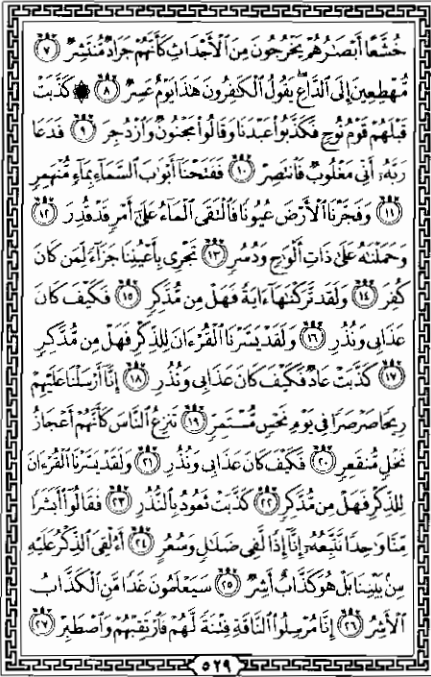 خُشَّعًا أَبْصَٰرُهُمْ يَخْرُجُونَ مِنَ ٱلْأَجْدَاثِ كَأَنَّهُمْ جَرَادٌ مُّنتَشِرٌ ٧
مُّهْطِعِينَ إِلَى ٱلدَّاعِ ۖ يَقُولُ ٱلْكَٰفِرُونَ هَٰذَا يَوْمٌ عَسِرٌ ٨ ۞ كَذَّبَتْ
قَبْلَهُمْ قَوْمُ نُوحٍ فَكَذَّبُوا۟ عَبْدَنَا وَقَالُوا۟ مَجْنُونٌ وَٱزْدُجِرَ ٩ فَدَعَا
رَبَّهُۥٓ أَنِّى مَغْلُوبٌ فَٱنتَصِرْ ١٠ فَفَتَحْنَآ أَبْوَٰبَ ٱلسَّمَآءِ بِمَآءٍ مُّنْهَمِرٍ
١١ وَفَجَّرْنَا ٱلْأَرْضَ عُيُونًا فَٱلْتَقَى ٱلْمَآءُ عَلَىٰٓ أَمْرٍ قَدْ قُدِرَ ١٢
وَحَمَلْنَٰهُ عَلَىٰ ذَاتِ أَلْوَٰحٍ وَدُسُرٍ ١٣ تَجْرِى بِأَعْيُنِنَا جَزَآءً لِّمَن كَانَ
كُفِرَ ١٤ وَلَقَد تَّرَكْنَٰهَآ ءَايَةً فَهَلْ مِن مُّدَّكِرٍ ١٥ فَكَيْفَ كَانَ
عَذَابِى وَنُذُرِ ١٦ وَلَقَدْ يَسَّرْنَا ٱلْقُرْءَانَ لِلذِّكْرِ فَهَلْ مِن مُّدَّكِرٍ
١٧ كَذَّبَتْ عَادٌ فَكَيْفَ كَانَ عَذَابِى وَنُذُرِ ١٨ إِنَّآ أَرْسَلْنَا عَلَيْهِمْ
رِيحًا صَرْصَرًا فِى يَوْمِ نَحْسٍ مُّسْتَمِرٍّ ١٩ تَنزِعُ ٱلنَّاسَ كَأَنَّهُمْ أَعْجَازُ
نَخْلٍ مُّنقَعِرٍ ٢٠ فَكَيْفَ كَانَ عَذَابِى وَنُذُرِ ٢١ وَلَقَدْ يَسَّرْنَا ٱلْقُرْءَانَ
لِلذِّكْرِ فَهَلْ مِن مُّدَّكِرٍ ٢٢ كَذَّبَتْ ثَمُودُ بِٱلنُّذُرِ ٢٣ فَقَالُوٓا۟ أَبَشَرًا
مِّنَّا وَٰحِدًا نَّتَّبِعُهُۥٓ إِنَّآ إِذًا لَّفِى ضَلَٰلٍ وَسُعُرٍ ٢٤ أَءُلْقِىَ ٱلذِّكْرُ عَلَيْهِ
مِنۢ بَيْنِنَا بَلْ هُوَ كَذَّابٌ أَشِرٌ ٢٥ سَيَعْلَمُونَ غَدًا مَّنِ ٱلْكَذَّابُ
ٱلْأَشِرُ ٢٦ إِنَّا مُرْسِلُوا۟ ٱلنَّاقَةِ فِتْنَةً لَّهُمْ فَٱرْتَقِبْهُمْ وَٱصْطَبِرْ ٢٧
٥٢٩